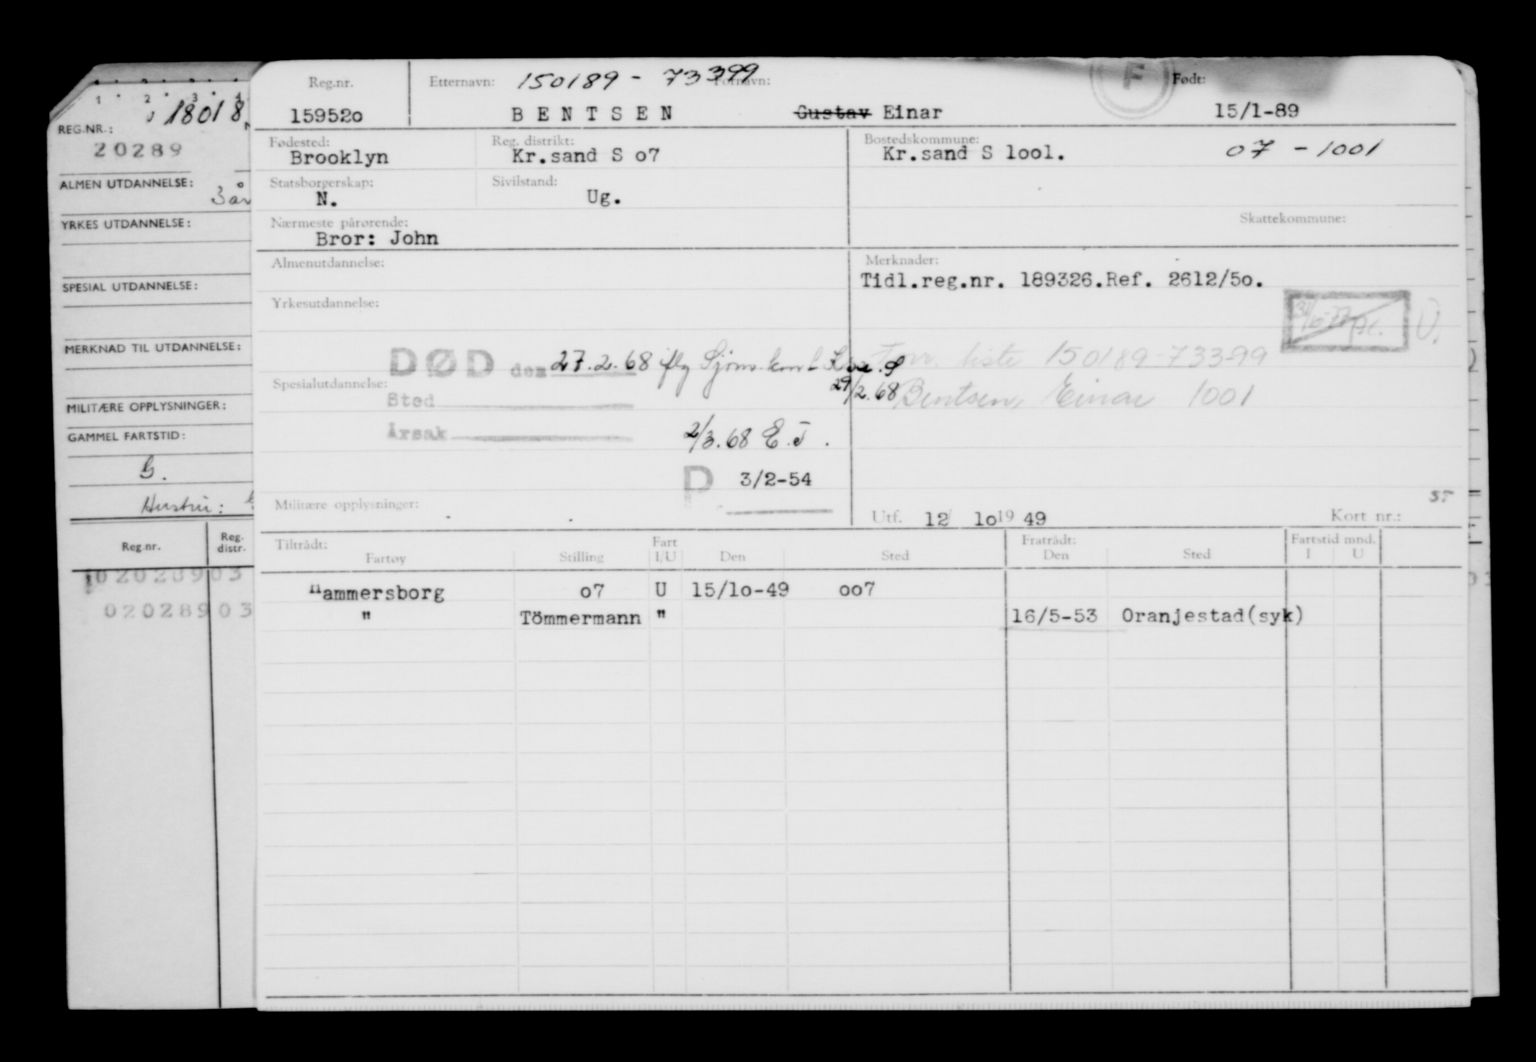 1 2 3 4
18018
REG.NR.:
20289
ALMEN UTDANNELSE:
3 år
YRKES UTDANNELSE:
SPESIAL UTDANNELSE:
MERKNAD TIL UTDANNELSE:
MILITÆRE OPPLYSNINGER:
GAMMEL FARTSTID:
G.
Hustru:
Reg.nr. Reg. distr.
02028903
02028903
Reg.nr. Etternavn: 150189 - 73399 Fornavn: F Født:
159520 BENTSEN Gustav Einar 15/1-89
Fødested: Reg. distrikt: Bostedskommune:
Brooklyn Kr.sand S o7 Kr.sand S lool. 07 - 1001
Statsborgerskap: Sivilstand:
N. Ug.
Nærmeste pårørende: Skattekommune:
Bror: John
Almenutdannelse: Merknader:
Tidl.reg.nr. 189326.Ref. 2612/5o.
Yrkesutdannelse:
DØD den 27.2.68 iflg Sjøm.kont Kr.s. S
liste 150189-73399
Spesialutdannelse: 29/2.68 Bentsen, Einar 1001
Sted
Årsak 2/3.68 E.J.
D 3/2-54
Militære opplysninger: Utf. 12 lo 19 49 Kort nr.:
Tiltrådt: Fart Fratrådt: Fartstid mnd.
Fartøy Stilling I/U Den Sted Den Sted I U
Hammersborg o7 U 15/lo-49 oo7
" Tömmermann " 16/5-53 Oranjestad(syk)